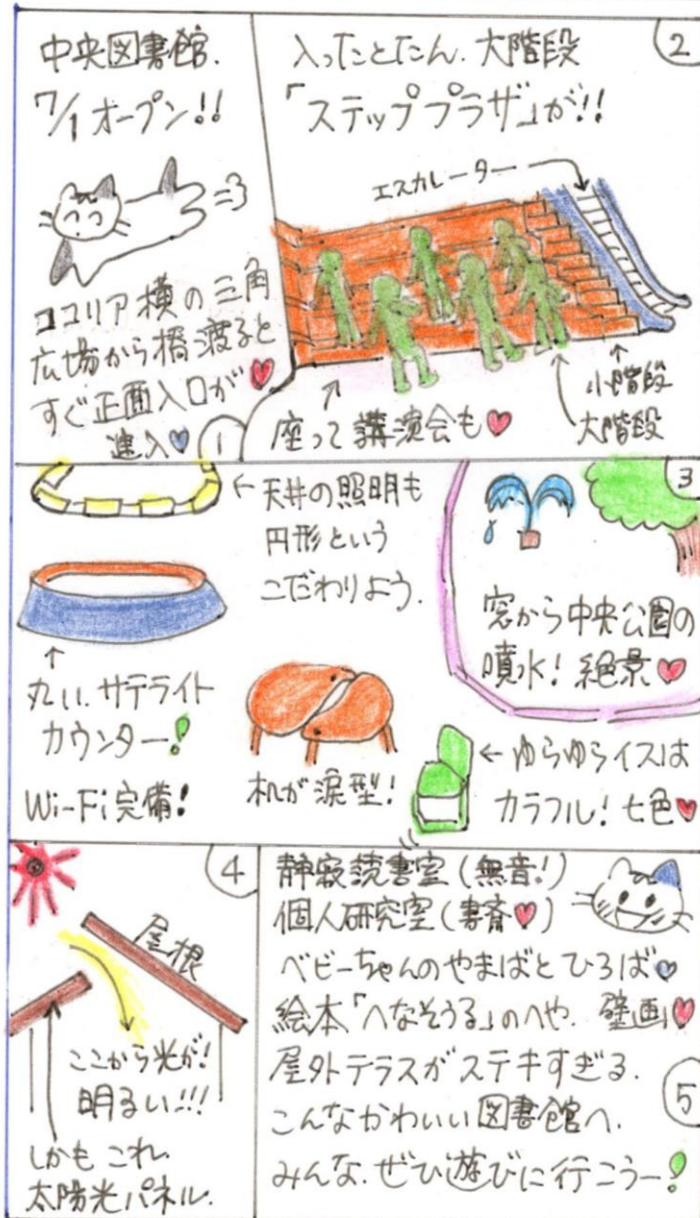 中央図書館.
7/1 オープン!!
ココリア横の三角
広場から橋渡ると
すぐ正面入口が
進入
1
2
入ったとたん. 大階段
「ステッププラザ」が!!
エスカレーター
小階段
大階段
座って講演会も
3
天井の照明も
円形という
こだわりよう.
丸い. サテライト
カウンター!
Wi-Fi完備!
机が涙型!
窓から中央公園の
噴水! 絶景
ゆらゆらイスは
カラフル! 七色
4
屋根
ここから光が!
明るい!!!
しかもこれ.
太陽光パネル.
静寂読書室(無音!)
個人研究室(書斎)
ベビーちゃんのやまばとひろば
絵本「へなそうる」のへや. 壁画
屋外テラスがステキすぎる.
こんなかわいい図書館へ.
みんな. ぜひ遊びに行こうー!
5